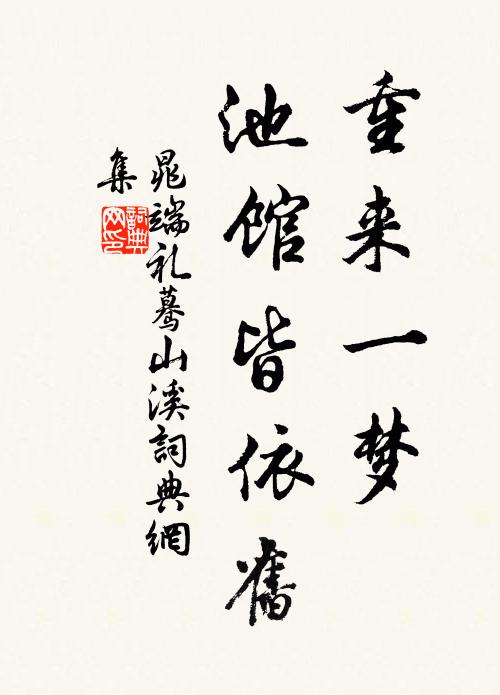 重来一梦
池馆皆依舊
晁端礼蓦山溪詞典網
集
詞典
网印